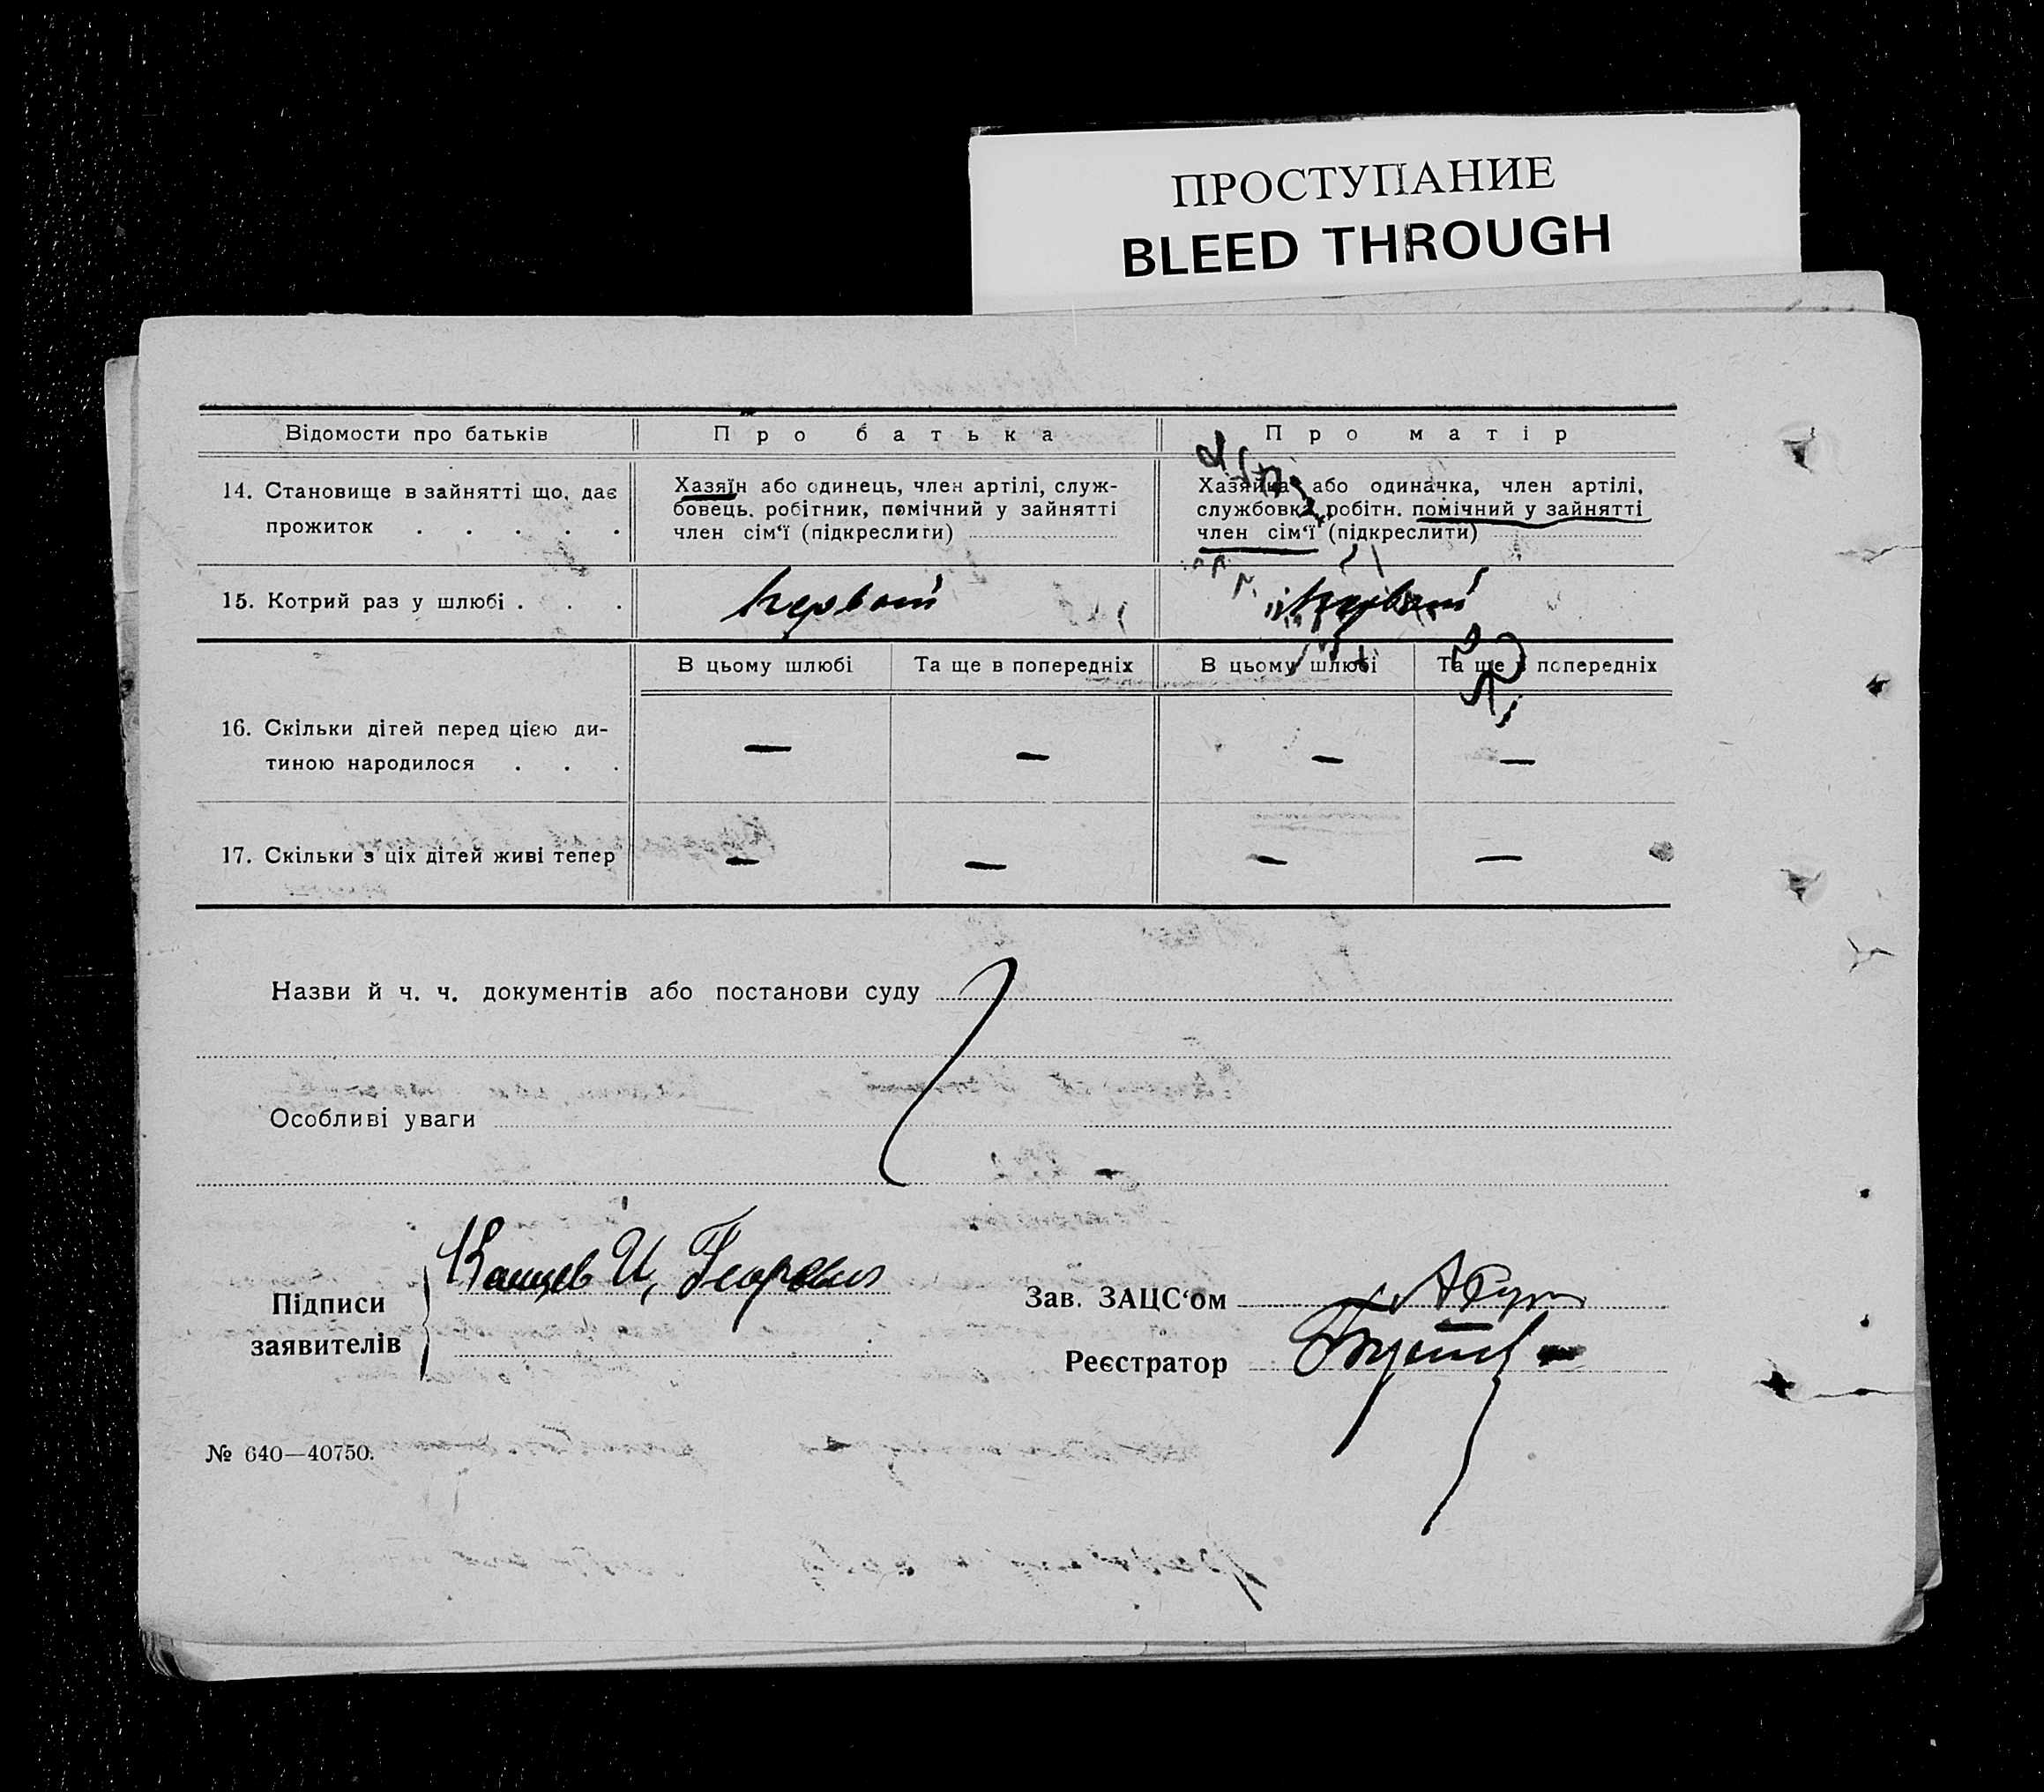 ПРОСТУПАНИЕ
BLEED THROUGH
Відомости про батьків
Про батька
Про матір
14. Становище в зайнятті що, дає
прожиток . . . . .
Хазяїн або одинець, член артілі, служ-
бовець. робітник, помічний у зайнятті
член сім‘ї (підкреслити)
Хазяйка або одиначка, член артілі,
службовка, робітн. помічний у зайнятті
член сім‘ї (підкреслити)
15. Котрий раз у шлюбі . . .
первый
первый
В цьому шлюбі
Та ще в попередніх
В цьому шлюбі
Та ще в попередніх
16. Скільки дітей перед цією ди-
тиною народилося . . .
— — — —
17. Скільки з ціх дітей живі тепер
— — — —
Назви й ч. ч. документів або постанови суду
Особливі уваги
Підписи
заявителів
И,
Зав. ЗАЦС‘ом
Реєстратор
№ 640—40750.